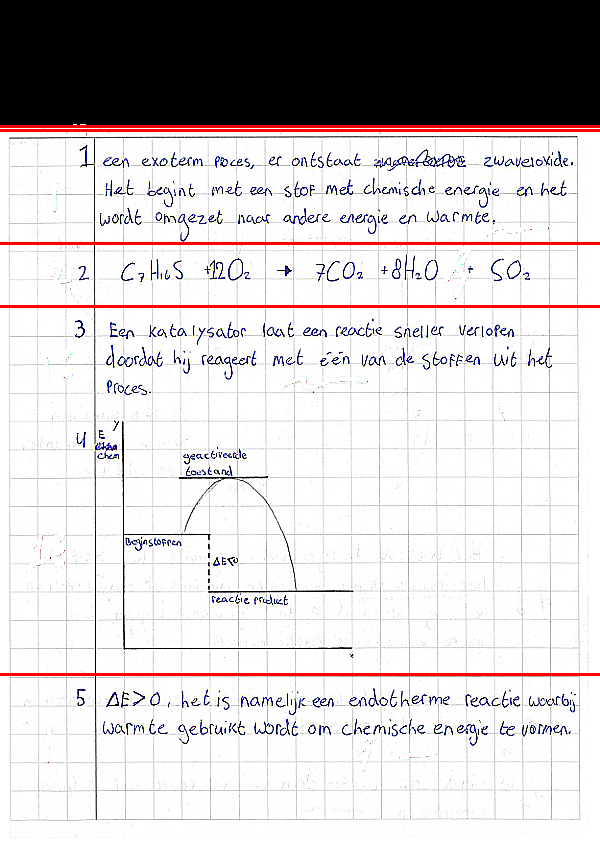 1 een exoterm proces, er ontstaat zwaveloxide.
Het begint met een stof met chemische energie en het
wordt omgezet naar andere energie en warmte.
2 C₇H₁₆S +12O₂ → 7CO₂ +8H₂O + SO₂
3 Een katalysator laat een reactie sneller verlopen
doordat hij reageert met één van de stoffen uit het
proces.
4 E y
chem
geactiveerde
toestand
Beginstoffen
ΔE<0
reactie product
x
5 ΔE>0, het is namelijk een endotherme reactie waarbij
warmte gebruikt wordt om chemische energie te vormen.